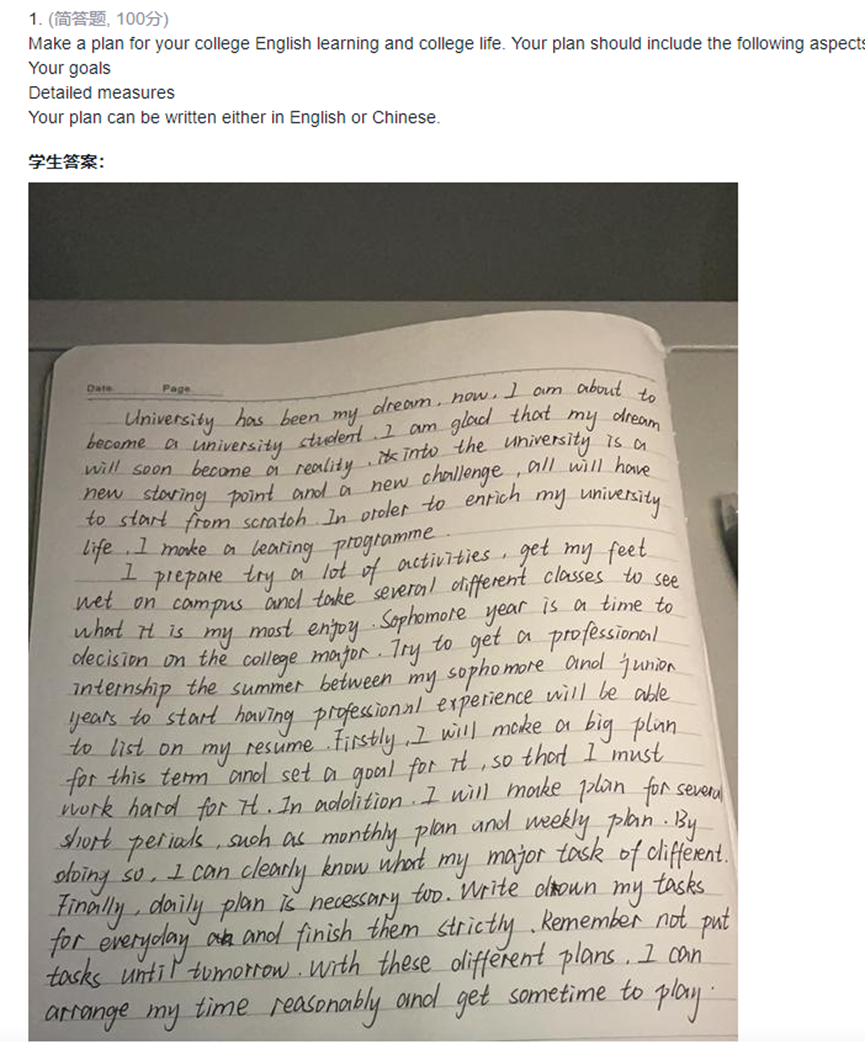 1. (简答题, 100分)
Make a plan for your college English learning and college life. Your plan should include the following aspects
Your goals
Detailed measures
Your plan can be written either in English or Chinese.
学生答案：
Date Page
University has been my dream, now, I am about to
become a university student. I am glad that my dream
will soon become a reality, into the university is a
new staring point and a new challenge, all will have
to start from scratch. In order to enrich my university
life, I make a learing programme.
I prepare try a lot of activities, get my feet
wet on campus and take several different classes to see
what it is my most enjoy. Sophomore year is a time to
decision on the college major. Try to get a professional
internship the summer between my sophomore and junior
years to start having professional experience will be able
to list on my resume. Firstly, I will make a big plan
for this term and set a goal for it, so that I must
work hard for it. In addition. I will make plan for several
short perials, such as monthly plan and weekly plan. By
doing so, I can clearly know what my major task of different.
Finally, daily plan is necessary too. Write down my tasks
for everyday and finish them strictly. Remember not put
tasks until tomorrow. With these different plans, I can
arrange my time reasonably and get sometime to play.